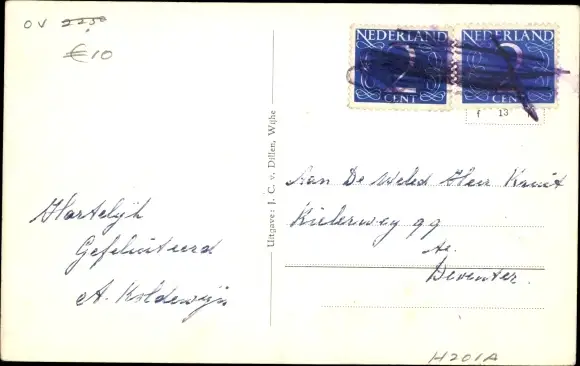 OV 2250
€10
NEDERLAND NEDERLAND
2 2
CENT CENT
f 13
Uitgave: J. C. v. Dillen, Wijhe
Aan De Weled Heer Kruit
Kielerweg 99
te.
Deventer.
Hartelijk
Gefeliciteerd
A. Koldewijn
H201A